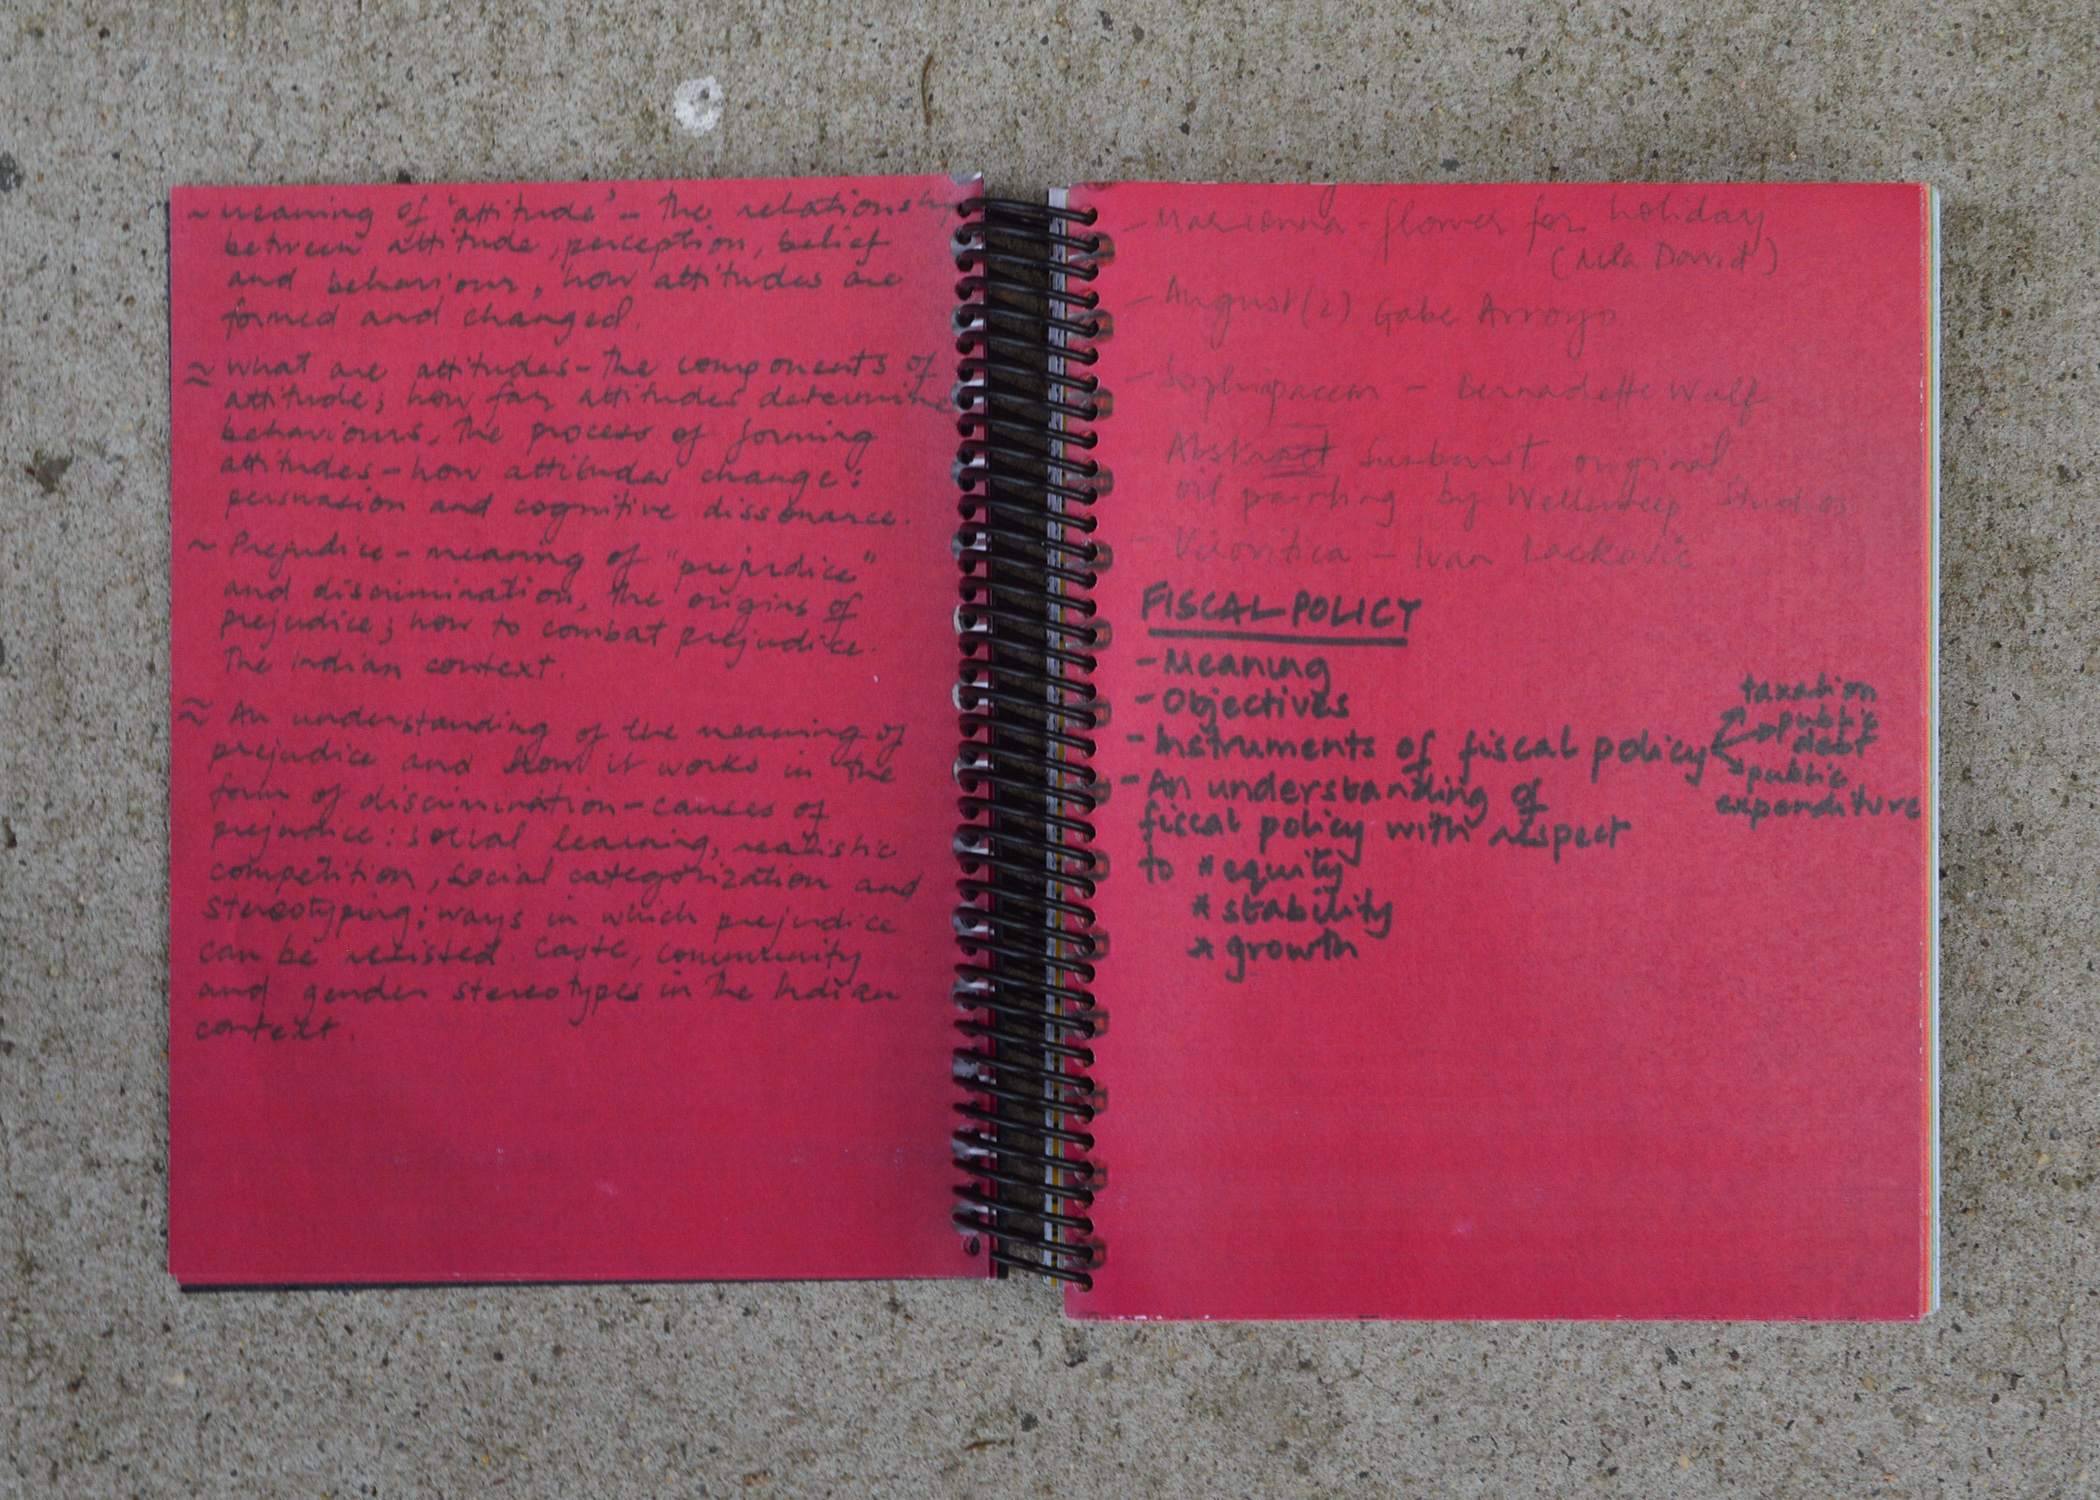 ~ Meaning of 'attitude' - the relationship
between attitude, perception, belief
and behaviour, how attitudes are
formed and changed.
≈ What are attitudes - the components of
attitude; how far attitudes determine
behaviours, the process of forming
attitudes - how attitudes change:
persuasion and cognitive dissonance.
~ Prejudice - meaning of "prejudice"
and discrimination, the origins of
prejudice; how to combat prejudice.
The Indian context.
≈ An understanding of the meaning of
prejudice and how it works in the
form of discrimination - causes of
prejudice: social learning, realistic
competition, social categorization and
stereotyping; ways in which prejudice
can be resisted. Caste, community
and gender stereotypes in the Indian
context.
- flower for holiday
David)
- August (2) Gabe Arroyo
- Bernadette Wulf
Abstract Sunburst original
oil painting by Wellsweep Studios
- Ivan Lacković
FISCAL POLICY
- Meaning
- Objectives
- Instruments of fiscal policy
taxation
public
debt
public
expenditure
- An understanding of
fiscal policy with respect
to * equity
* stability
* growth